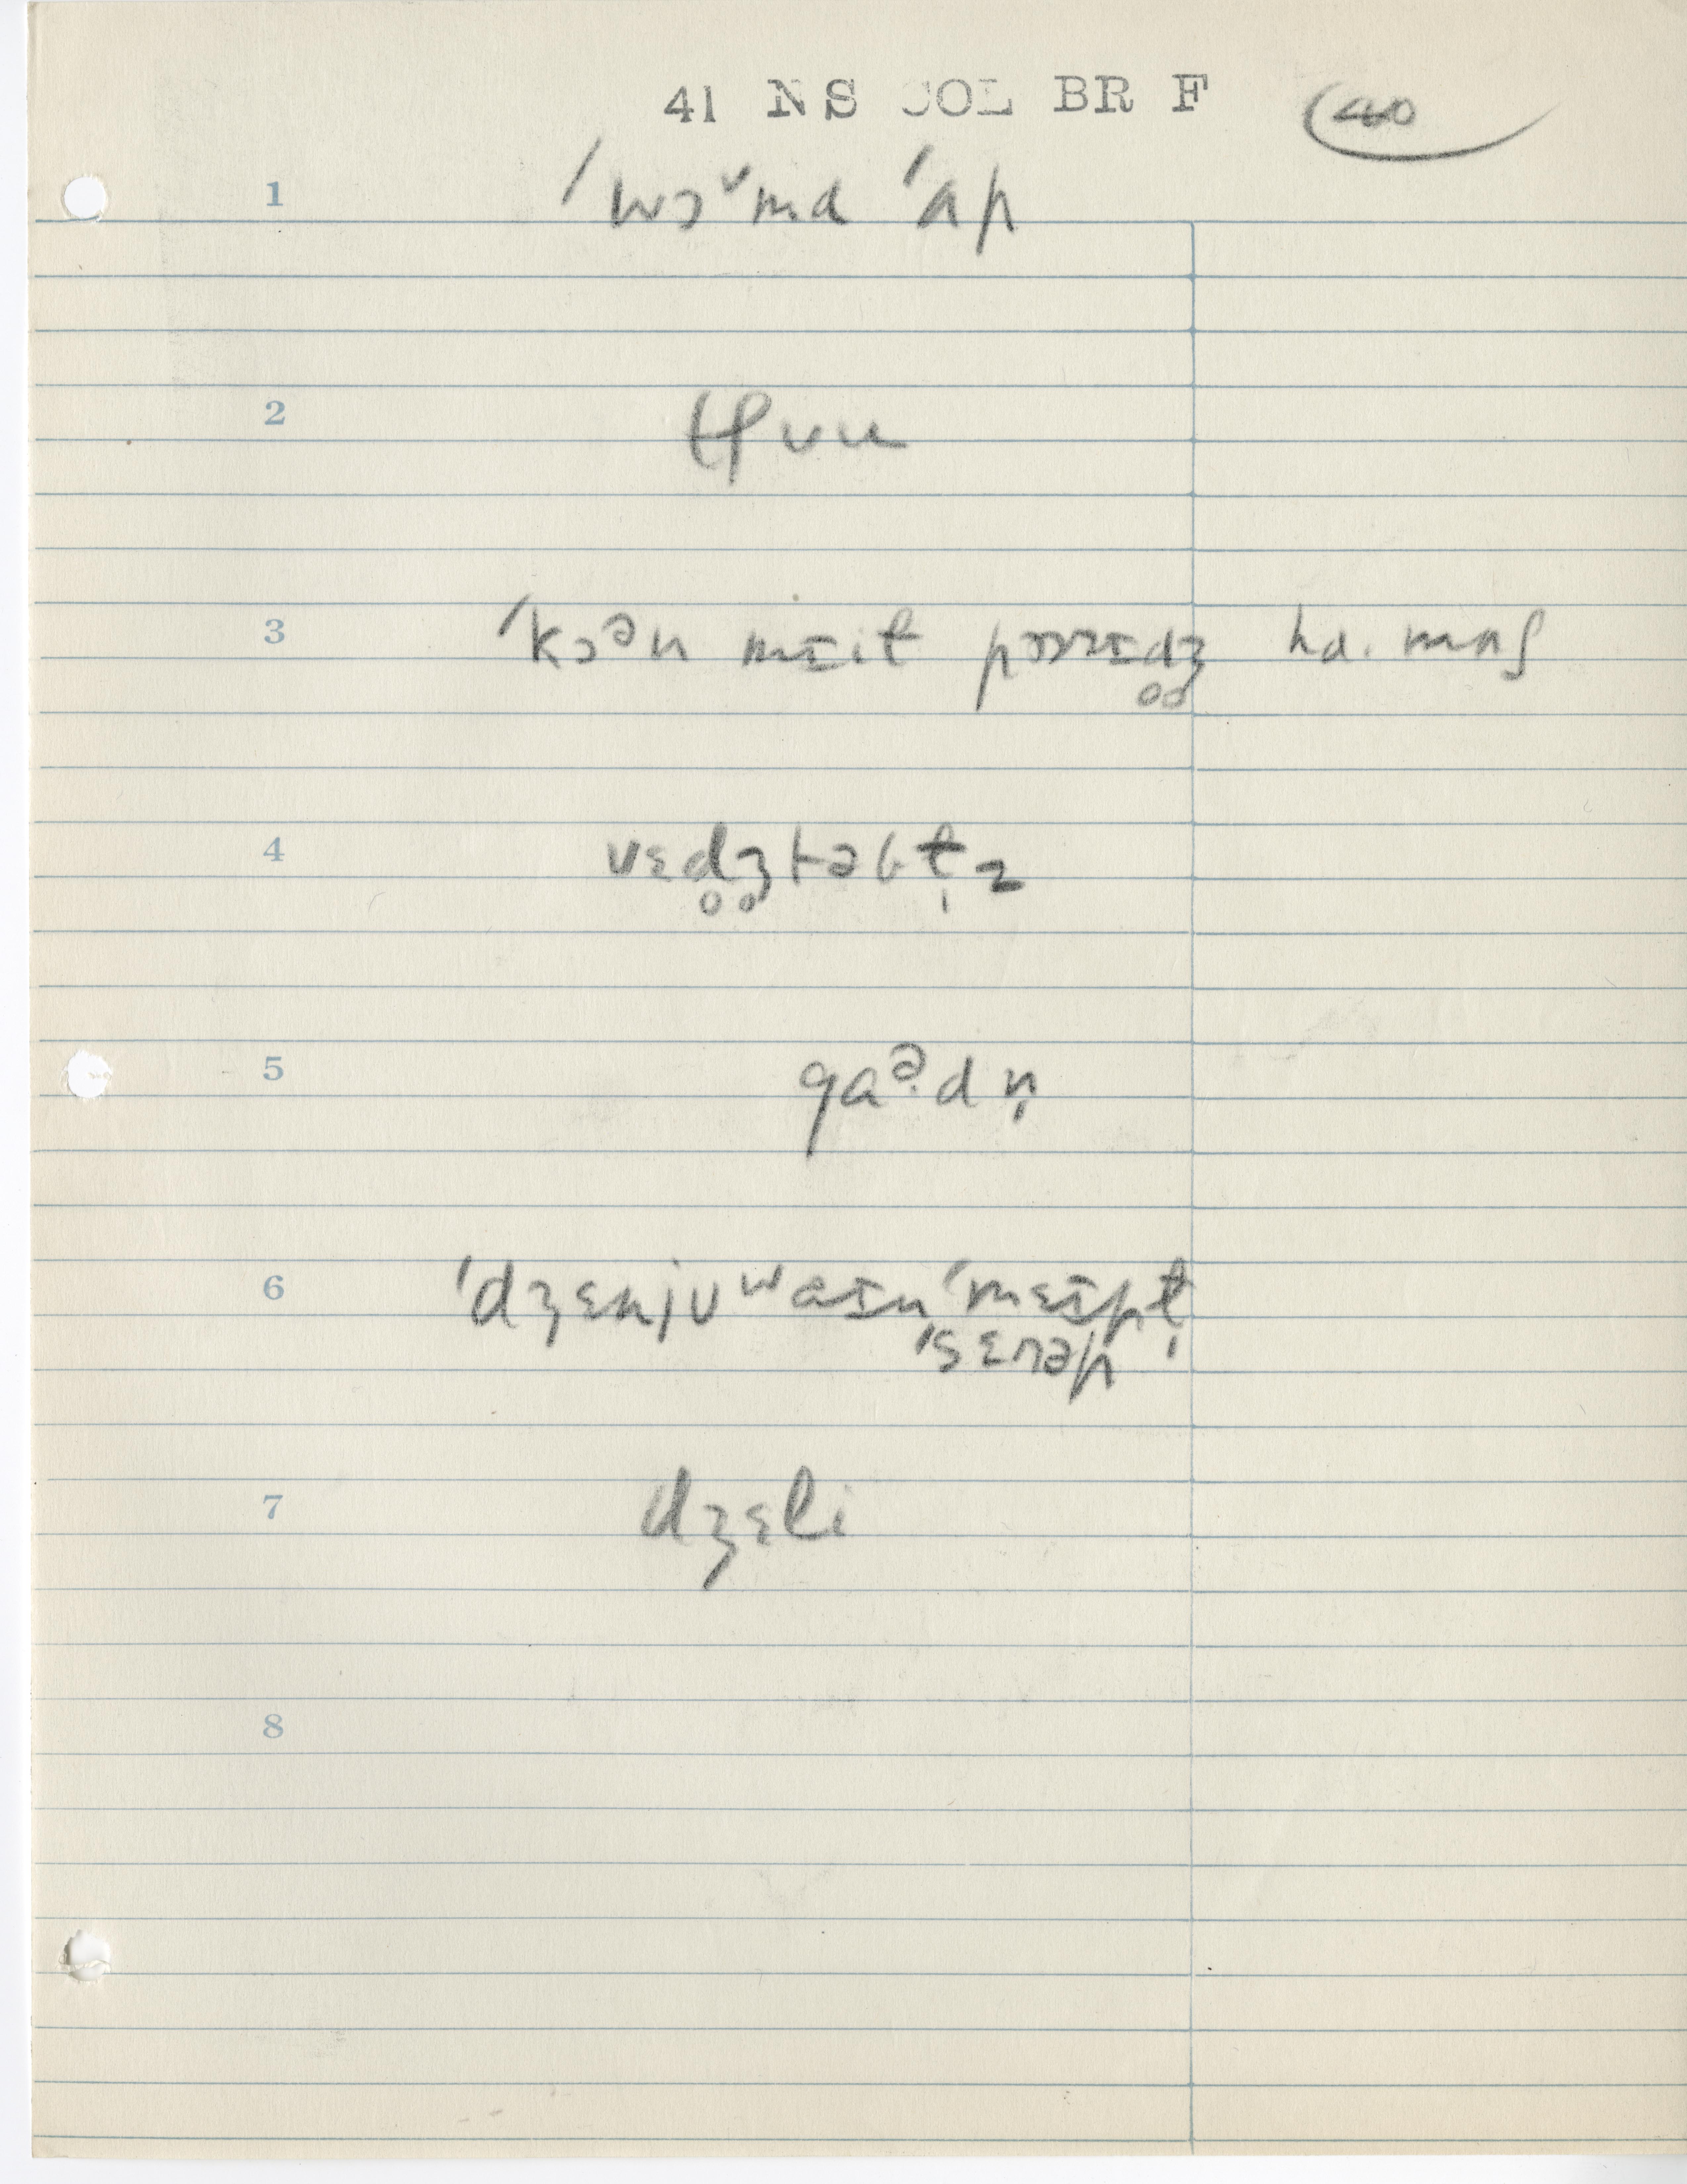 41 NS COL BR F 40
1 ˈwɔᶹmɑ ˈɑp
2 tʃʊu
3 ˈkɔᵊn mɪit pɔrɪd̥ʒ̥ hɑ. mʌʃ
4 vɛd̥ʒ̥təbt̩z
5 gaᵊ.dn̩
6 ˈdʒɛnjʊʷaɪn ˈmɛɪpt̩
ˈsɛrəp
7 dʒɛli
8